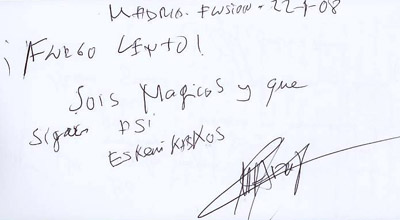 MADRID. FUSION - 22-1-08
¡FUEGO LENTO!
Sois Magicos y que
sigais ASI
ESKERRIKASKOS